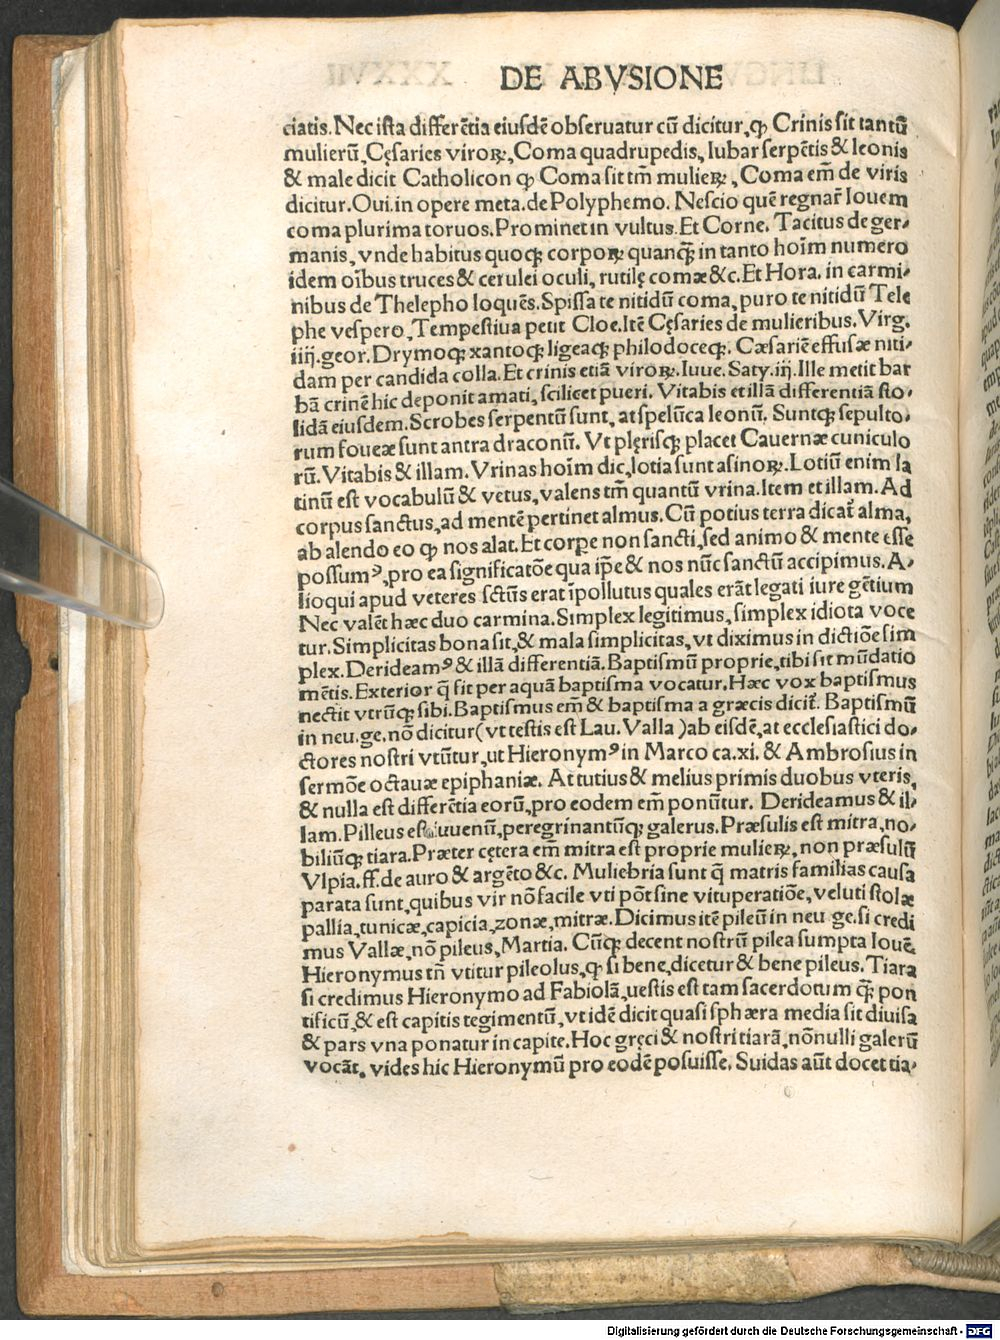 DE ABVSIONE
ciatis. Nec ista differētia eiusdē obseruatur cū dicitur, ꝙ Crinis sit tantū
mulierū, Cęsaries viroꝝ, Coma quadrupedis, Iubar serpētis & leonis
& male dicit Catholicon ꝙ Coma sit tm̄ mulieꝝ, Coma em̄ de viris
dicitur. Oui. in opere meta. de Polyphemo. Nescio quē regnar̄ Iouem
coma plurima toruos. Prominet in vultus. Et Corne. Tacitus de ger-
manis, vnde habitus quoqꝫ corpoꝝ quanqꝫ̄ in tanto hoīm numero
idem oībus truces & cerulei oculi, rutilę comæ &c. Et Hora. in carmi-
nibus de Thelepho loquēs. Spissa te nitidū coma, puro te nitidū Tele
phe vespero, Tempestiua petit Cloe. Itē Cęsaries de mulieribus. Virg.
iiij. geor. Drymoqꝫ xantoqꝫ ligeaqꝫ philodoceqꝫ. Cæsariē effusæ niti-
dam per candida colla. Et crinis etiā viroꝝ. Iuue. Saty. iij. Ille metit bar
bā crinē hic deponit amati, scilicet pueri. Vitabis et illā differentiā sto-
lidā eiusdem. Scrobes serpentū sunt, at spelūca leonū. Suntqꝫ sepulto-
rum foueæ sunt antra draconū. Vt plęrisqꝫ placet Cauernæ cuniculo
rū. Vitabis & illam. Vrinas hoīm dic, lotia sunt asinoꝝ. Lotiū enim la
tinū est vocabulū & vetus, valens tm̄ quantū vrina. Item et illam. Ad
corpus sanctus, ad mentē pertinet almus. Cū potius terra dicat̄ alma,
ab alendo eo ꝙ nos alat. Et corpe non sancti, sed animo & mente esse
possumꝰ, pro ea significatōe qua ip̄e & nos nūc sanctū accipimus. A-
lioqui apud veteres sctūs erat īpollutus quales erāt legati iure gētium
Nec valēt hæc duo carmina. Simplex legitimus, simplex idiota voce
tur. Simplicitas bona sit, & mala simplicitas, vt diximus in dictiōe sim
plex. Derideamꝰ & illā differentiā. Baptismū proprie, tibi sit mūdatio
mētis. Exterior q̄ fit per aquā baptisma vocatur. Hæc vox baptismus
nectit vtrūqꝫ sibi. Baptismus em̄ & baptisma a græcis dicit̄. Baptismū
in neu. ge. nō dicitur (vt testis est Lau. Valla) ab eisdē, at ecclesiastici do-
ctores nostri vtūtur, ut Hieronymꝰ in Marco ca. xi. & Ambrosius in
sermōe octauæ epiphaniæ. At tutius & melius primis duobus vteris,
& nulla est differētia eorū, pro eodem em̄ ponūtur. Derideamus & il-
lam. Pilleus est iuuenū, peregrinantūqꝫ galerus. Præsulis est mitra, no-
biliūqꝫ tiara. Præter cętera em̄ mitra est proprie mulieꝝ, non præsulū
Vlpia. ff. de auro & argēto &c. Muliebria sunt q̄ matris familias causa
parata sunt, quibus vir nō facile vti pōt sine vituperatiōe, veluti stolæ
pallia, tunicæ, capicia, zonæ, mitræ. Dicimus itē pileū in neu. ge. si credi
mus Vallæ, nō pileus, Martia. Cūqꝫ decent nostrū pilea sumpta Iouē.
Hieronymus tn̄ vtitur pileolus, ꝙ si bene, dicetur & bene pileus. Tiara
si credimus Hieronymo ad Fabiolā, uestis est tam sacerdotum qꝫ̄ pon
tificū, & est capitis tegimentū, vt idē dicit quasi sphæra media sit diuisa
& pars vna ponatur in capite. Hoc gręci & nostri tiarā, nōnulli galerū
vocāt. vides hic Hieronymū pro eodē posuisse. Suidas aūt docet tia-
Digitalisierung gefördert durch die Deutsche Forschungsgemeinschaft - DFG